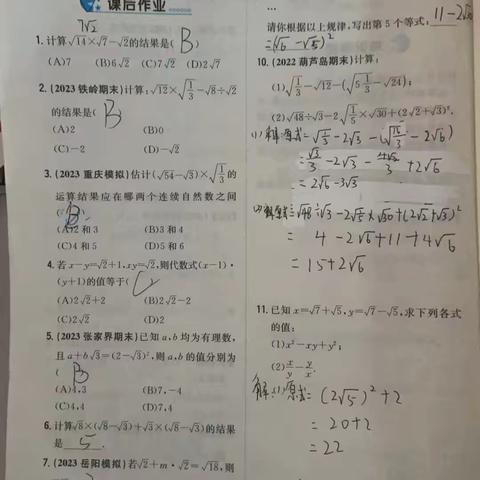 课后作业
7√2
1. 计算√14×√7−√2的结果是( B )
(A)7 (B)6√2 (C)7√2 (D)2√7
2. (2023 铁岭期末)计算:√12×√(1/3)−√8÷√2
的结果是( B )
(A)2 (B)0
(C)−2 (D)−√2
3. (2023 重庆模拟)估计(√54−√3)×√(1/3)的
运算结果应在哪两个连续自然数之间
( B )
(A)2 和 3 (B)3 和 4
(C)4 和 5 (D)5 和 6
4. 若 x−y=√2+1,xy=√2,则代数式(x−1)·
(y+1)的值等于( C )
(A)2√2+2 (B)2√2−2
(C)2√2 (D)2
5. (2023 张家界期末)已知 a,b 均为有理数,
且 a+b√3=(2−√3)²,则 a,b 的值分别为
( B )
(A)4,3 (B)7,−4
(C)4,4 (D)7,4
6. 计算√8×(√8−√3)+√3×(√8−√3)的结果
是 5 .
7. (2023 岳阳模拟)若√2+m·√2=√18,则
…
请你根据以上规律,写出第 5 个等式: 11−2√30
=(√6−√5)²
10. (2022 葫芦岛期末)计算:
(1)√(1/3)−√12−(√(5 1/3)−√24);
(2)√48÷√3−2√(1/5)×√30+(2√2+√3)².
(1)解:原式=√(1/3)−2√3−(√(16/3)−2√6)
=√3/3−2√3−4√3/3+2√6
=2√6−3√3
(2)解:原式=√48÷√3−2√(1/5)×√30+(2√2+√3)²
= 4−2√6+11+4√6
= 15+2√6
11. 已知 x=√7+√5,y=√7−√5,求下列各式
的值:
(1)x²−xy+y²;
(2)x/y−y/x.
解:(1)原式=(2√5)²+2
= 20+2
= 22